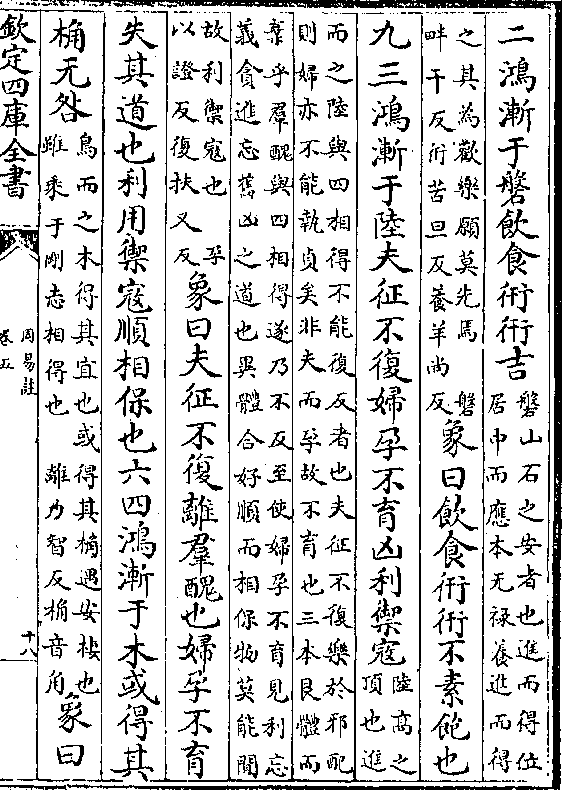 二鴻漸于磐飲食衎衎吉
磐山石之安者也進而得位
居中而應本无祿養進而得
之其為歡樂願莫先焉　磐
畔干反衎苦旦反養羊尚反
象曰飲食衎衎不素飽也
九三鴻漸于陸夫征不復婦孕不育凶利禦寇
陸高之
頂也進
而之陸與四相得不能復反者也夫征不復樂於邪配
則婦亦不能執貞矣非夫而孕故不育也三本艮體而
棄乎羣醜與四相得遂乃不反至使婦孕不育見利忘
義貪進忘舊凶之道也異體合好順而相保物莫能閒
故利禦寇也　孕
以證反復扶又反
象曰夫征不復離羣醜也婦孕不育
失其道也利用禦寇順相保也六四鴻漸于木或得其
桷无咎
鳥而之木得其宜也或得其桷遇安棲也
雖乘于剛志相得也　離乃智反桷音角
象曰
欽定四庫全書
周易註
卷五
十八